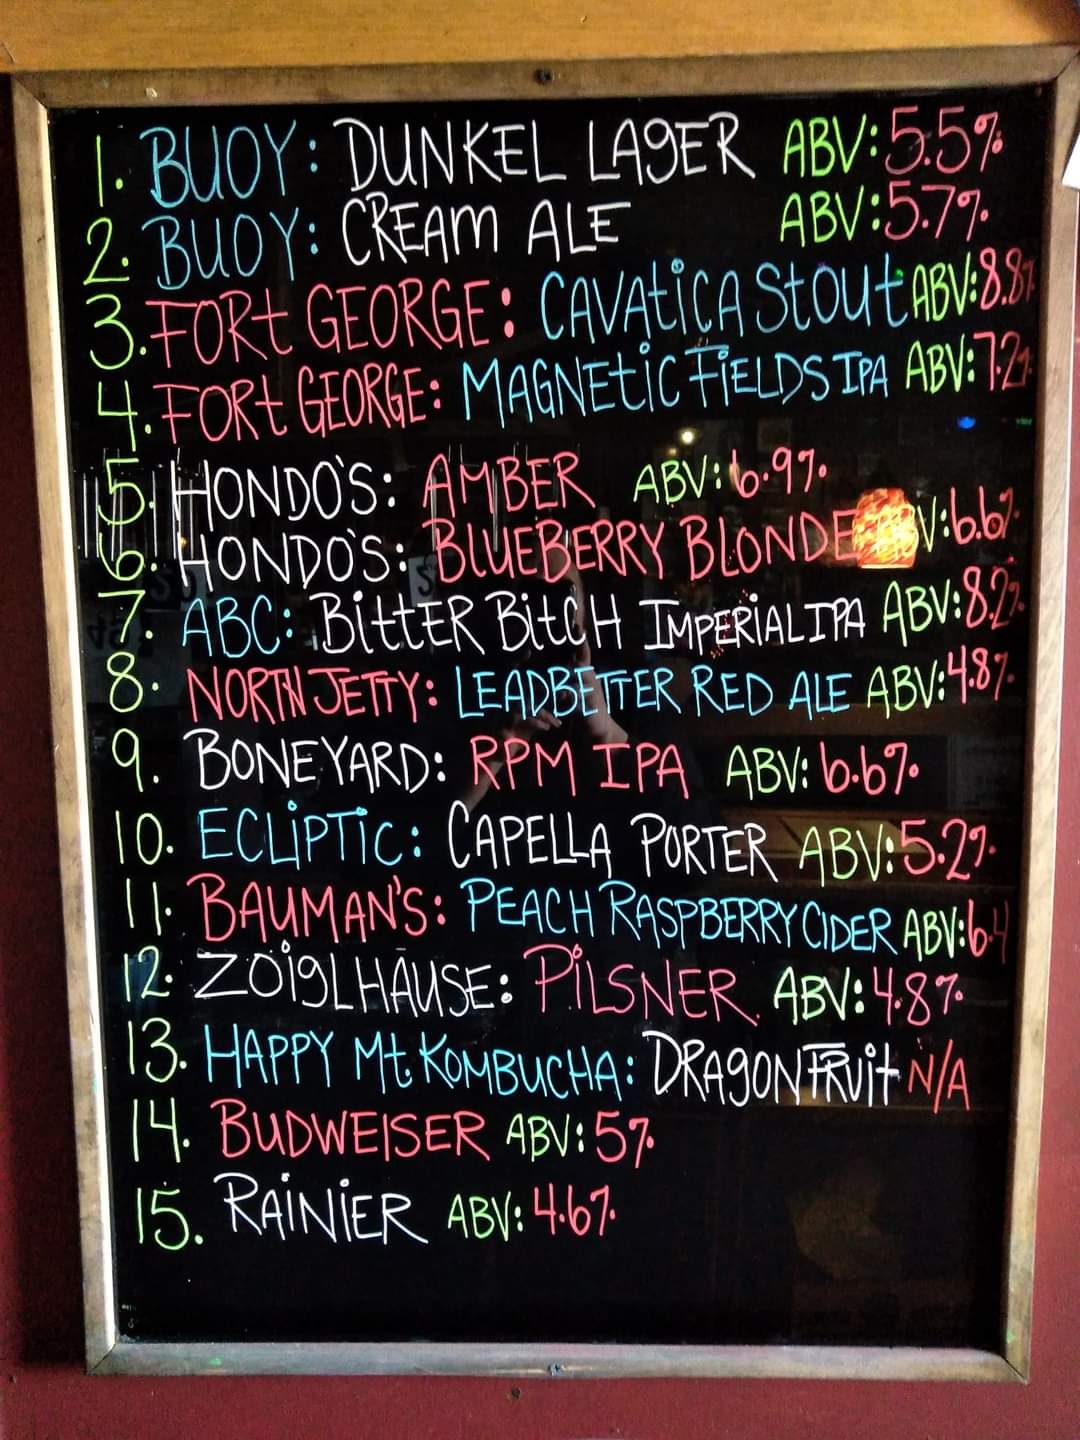 1. BUOY: DUNKEL LAGER ABV: 5.5%
2. BUOY: CREAM ALE ABV: 5.7%
3. FORT GEORGE: CAVATICA STOUT ABV: 8.8%
4. FORT GEORGE: MAGNETIC FIELDS IPA ABV: 7.2%
5. HONDO'S: AMBER ABV: 6.9%
6. HONDO'S: BLUEBERRY BLONDE ABV: 6.6%
7. ABC: BITTER BITCH IMPERIAL IPA ABV: 8.2%
8. NORTH JETTY: LEADBETTER RED ALE ABV: 4.8%
9. BONEYARD: RPM IPA ABV: 6.6%
10. ECLIPTIC: CAPELLA PORTER ABV: 5.2%
11. BAUMAN'S: PEACH RASPBERRY CIDER ABV: 6.4
12. ZOIGLHAUSE: PILSNER ABV: 4.8%
13. HAPPY Mt. KOMBUCHA: DRAGONFRUIT N/A
14. BUDWEISER ABV: 5%
15. RAINIER ABV: 4.6%